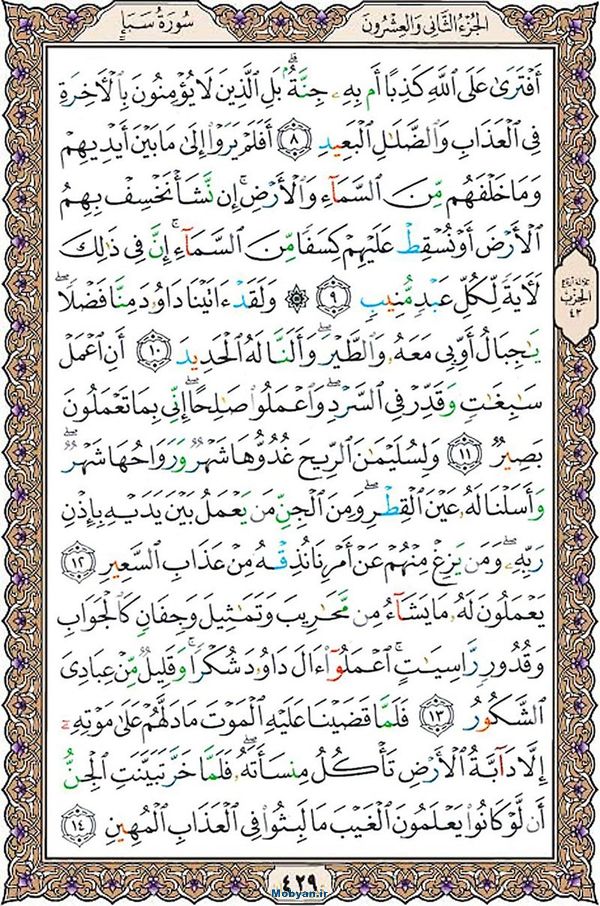 الجُزءُ الثَّانِي وَالعِشرُونَ
سُورَةُ سَبَإٍ
أَفْتَرَىٰ عَلَى ٱللَّهِ كَذِبًا أَم بِهِۦ جِنَّةُۢ ۗ بَلِ ٱلَّذِينَ لَا يُؤْمِنُونَ بِٱلْأٓخِرَةِ
فِى ٱلْعَذَابِ وَٱلضَّلَـٰلِ ٱلْبَعِيدِ ٨ أَفَلَمْ يَرَوْا۟ إِلَىٰ مَا بَيْنَ أَيْدِيهِمْ
وَمَا خَلْفَهُم مِّنَ ٱلسَّمَآءِ وَٱلْأَرْضِ ۚ إِن نَّشَأْ نَخْسِفْ بِهِمُ
ٱلْأَرْضَ أَوْ نُسْقِطْ عَلَيْهِمْ كِسَفًا مِّنَ ٱلسَّمَآءِ ۚ إِنَّ فِى ذَٰلِكَ
لَـَٔايَةً لِّكُلِّ عَبْدٍ مُّنِيبٍ ٩ ۞ وَلَقَدْ ءَاتَيْنَا دَاوُۥدَ مِنَّا فَضْلًا ۖ
يَـٰجِبَالُ أَوِّبِى مَعَهُۥ وَٱلطَّيْرَ ۖ وَأَلَنَّا لَهُ ٱلْحَدِيدَ ١٠ أَنِ ٱعْمَلْ
سَـٰبِغَـٰتٍ وَقَدِّرْ فِى ٱلسَّرْدِ ۖ وَٱعْمَلُوا۟ صَـٰلِحًا ۖ إِنِّى بِمَا تَعْمَلُونَ
بَصِيرٌ ١١ وَلِسُلَيْمَـٰنَ ٱلرِّيحَ غُدُوُّهَا شَهْرٌ وَرَوَاحُهَا شَهْرٌ ۖ
وَأَسَلْنَا لَهُۥ عَيْنَ ٱلْقِطْرِ ۖ وَمِنَ ٱلْجِنِّ مَن يَعْمَلُ بَيْنَ يَدَيْهِ بِإِذْنِ
رَبِّهِۦ ۖ وَمَن يَزِغْ مِنْهُمْ عَنْ أَمْرِنَا نُذِقْهُ مِنْ عَذَابِ ٱلسَّعِيرِ ١٢
يَعْمَلُونَ لَهُۥ مَا يَشَآءُ مِن مَّحَـٰرِيبَ وَتَمَـٰثِيلَ وَجِفَانٍ كَٱلْجَوَابِ
وَقُدُورٍ رَّاسِيَـٰتٍ ۚ ٱعْمَلُوٓا۟ ءَالَ دَاوُۥدَ شُكْرًا ۚ وَقَلِيلٌ مِّنْ عِبَادِىَ
ٱلشَّكُورُ ١٣ فَلَمَّا قَضَيْنَا عَلَيْهِ ٱلْمَوْتَ مَا دَلَّهُمْ عَلَىٰ مَوْتِهِۦٓ
إِلَّا دَآبَّةُ ٱلْأَرْضِ تَأْكُلُ مِنسَأَتَهُۥ ۖ فَلَمَّا خَرَّ تَبَيَّنَتِ ٱلْجِنُّ
أَن لَّوْ كَانُوا۟ يَعْلَمُونَ ٱلْغَيْبَ مَا لَبِثُوا۟ فِى ٱلْعَذَابِ ٱلْمُهِينِ ١٤
الحِزْب
٤٣
٤٢٩
Mobyan.ir